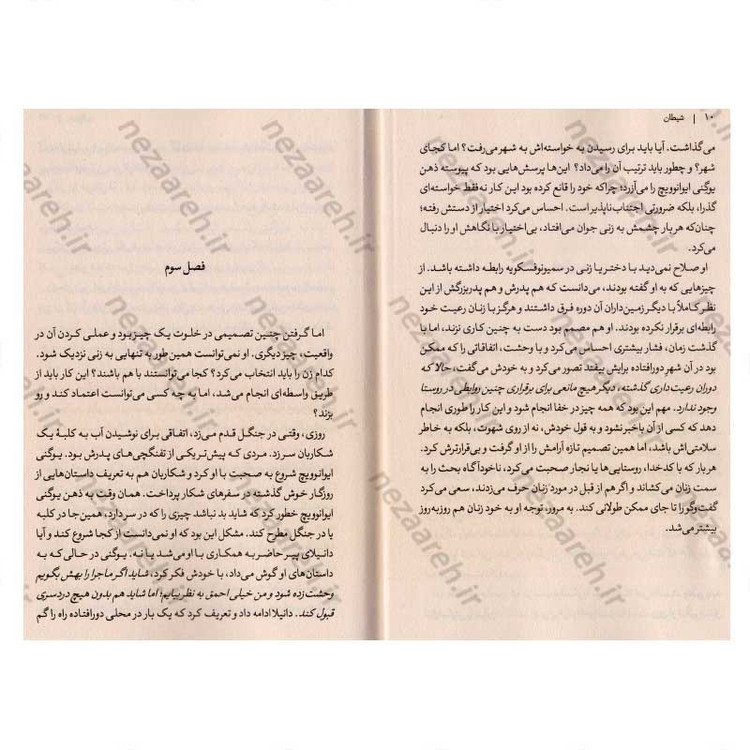 ۱۰ | شیطان
می‌گذاشت. آیا باید برای رسیدن به خواسته‌اش به شهر می‌رفت؟ اما کجای
شهر؟ و چطور باید ترتیب آن را می‌داد؟ این‌ها پرسش‌هایی بود که پیوسته ذهن
یوگنی ایوانوویچ را می‌آزرد؛ چراکه خود را قانع کرده بود این کار نه‌فقط خواسته‌ای
گذرا، بلکه ضرورتی اجتناب‌ناپذیر است. احساس می‌کرد اختیار از دستش رفته؛
چنان‌که هر بار چشمش به زنی جوان می‌افتاد، بی‌اختیار با نگاهش او را دنبال
می‌کرد.
او صلاح نمی‌دید با دختر یا زنی در سمیونوفسکویه رابطه داشته باشد. از
چیزهایی که به او گفته بودند، می‌دانست که هم پدرش و هم پدربزرگش از این
نظر کاملاً با دیگر زمین‌داران آن دوره فرق داشتند و هرگز با زنان رعیت خود
رابطه‌ای برقرار نکرده بودند. او هم مصمم بود دست به چنین کاری نزند، اما با
گذشت زمان، فشار بیشتری احساس می‌کرد و با وحشت، اتفاقاتی را که ممکن
بود در آن شهرِ دورافتاده برایش بیفتد تصور می‌کرد و به خودش می‌گفت، حالا که
دوران رعیت‌داری گذشته، دیگر هیچ مانعی برای برقراری چنین روابطی در روستا
وجود ندارد. مهم این بود که همه چیز در خفا انجام شود و این کار را طوری انجام
دهد که کسی از آن باخبر نشود و به قول خودش، نه از روی شهوت، بلکه به خاطر
سلامتی‌اش باشد، اما همین تصمیم تازه آرامش را از او گرفت و بی‌قرارترش کرد.
هر بار که با کدخدا، روستایی‌ها یا نجار صحبت می‌کرد، ناخودآگاه بحث را به
سمت زنان می‌کشاند و اگر هم از قبل در مورد زنان حرف می‌زدند، سعی می‌کرد
گفت‌وگو را تا جای ممکن طولانی کند. به مرور، توجه او به خود زنان هم روزبه‌روز
بیشتر می‌شد.
فصل سوم
اما گرفتن چنین تصمیمی در خلوت یک چیز بود و عملی کردن آن در
واقعیت، چیز دیگری. او نمی‌توانست همین طور به تنهایی به زنی نزدیک شود.
کدام زن را باید انتخاب می‌کرد؟ کجا می‌توانستند با هم باشند؟ این کار باید از
طریق واسطه‌ای انجام می‌شد، اما به چه کسی می‌توانست اعتماد کند و رو
بزند؟
روزی، وقتی در جنگل قدم می‌زد، اتفاقی برای نوشیدن آب به کلبهٔ یک
شکاربان سر زد. مردی که پیش‌تر یکی از تفنگچی‌های پدرش بود. یوگنی
ایوانوویچ شروع به صحبت با او کرد و شکاربان هم به تعریف داستان‌هایی از
روزگار خوش گذشته در سفرهای شکار پرداخت. همان وقت به ذهن یوگنی
ایوانوویچ خطور کرد که شاید بد نباشد چیزی را که در سر دارد، همین جا در کلبه
یا در جنگل مطرح کند. مشکل این بود که او نمی‌دانست از کجا شروع کند و آیا
دانیلای پیر حاضر به همکاری با او می‌شد یا نه. یوگنی در حالی که به
داستان‌های او گوش می‌داد، با خودش فکر کرد، شاید اگر ماجرا را بهش بگویم
وحشت‌زده شود و من خیلی احمق به نظر بیایم؛ اما شاید هم بدون هیچ دردسری
قبول کند. دانیلا ادامه داد و تعریف کرد که یک بار در محلی دورافتاده راه را گم
nezaareh.ir
nezaareh.ir
nezaareh.ir
nezaareh.ir
nezaareh.ir
nezaareh.ir